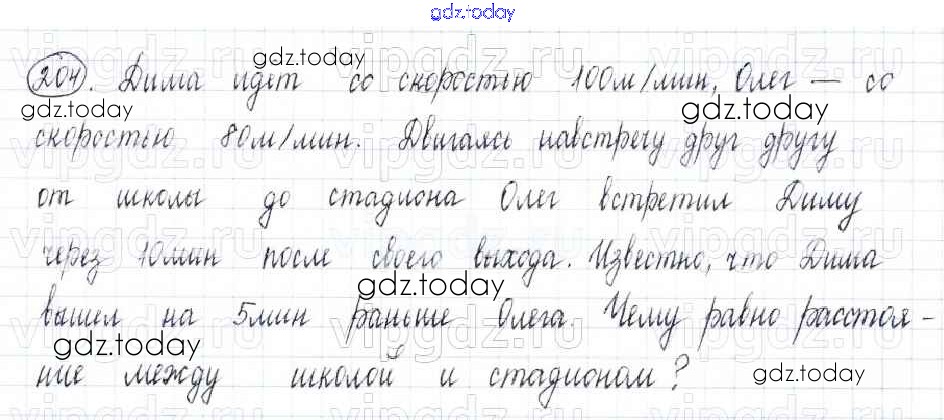 gdz.today
204. Дима идет со скоростью 100м/мин, Олег — со
gdz.today
gdz.today
gdz.today
скоростью 80м/мин. Двигаясь навстречу друг другу
от школы до стадиона Олег встретил Диму
через 10мин после своего выхода. Известно, что Дима
gdz.today
вышел на 5мин раньше Олега. Чему равно расстоя-
gdz.today
ние между школой и стадионом?
gdz.today